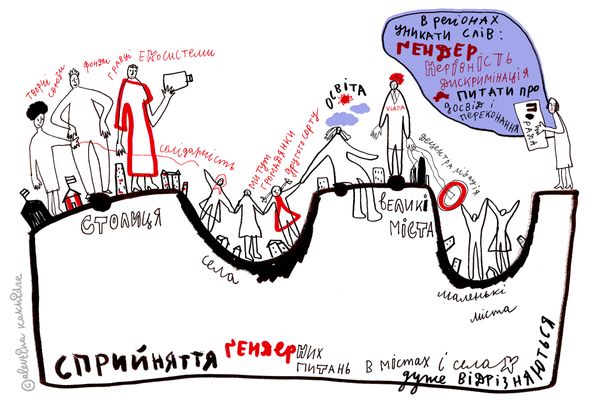 В РЕГІОНАХ
УНИКАТИ СЛІВ:
ҐЕНДЕР
НЕРІВНІСТЬ
ДИСКРИМІНАЦІЯ
ПИТАТИ ПРО
ДОСВІД І
ПЕРЕКОНАННЯ
ПОРАДА
ТВОРЧІ
СОЮЗИ
ФОНДИ
ГРАВЦІ
ЕКОСИСТЕМИ
СОЛІДАРНІСТЬ
МИ ТУТ
ГРОМАДЯНКИ
ДРУГОГО СОРТУ
ОСВІТА
ВЛАДА
ДЕЦЕНТРАЛІЗАЦІЯ
СТОЛИЦЯ
села
ВЕЛИКІ
МІСТА
маленькі
міста
СПРИЙНЯТТЯ ҐЕНДЕРНИХ
ПИТАНЬ В МІСТАХ І СЕЛАХ
ДУЖЕ ВІДРІЗНЯЮТЬСЯ
©alevtina kakhidze